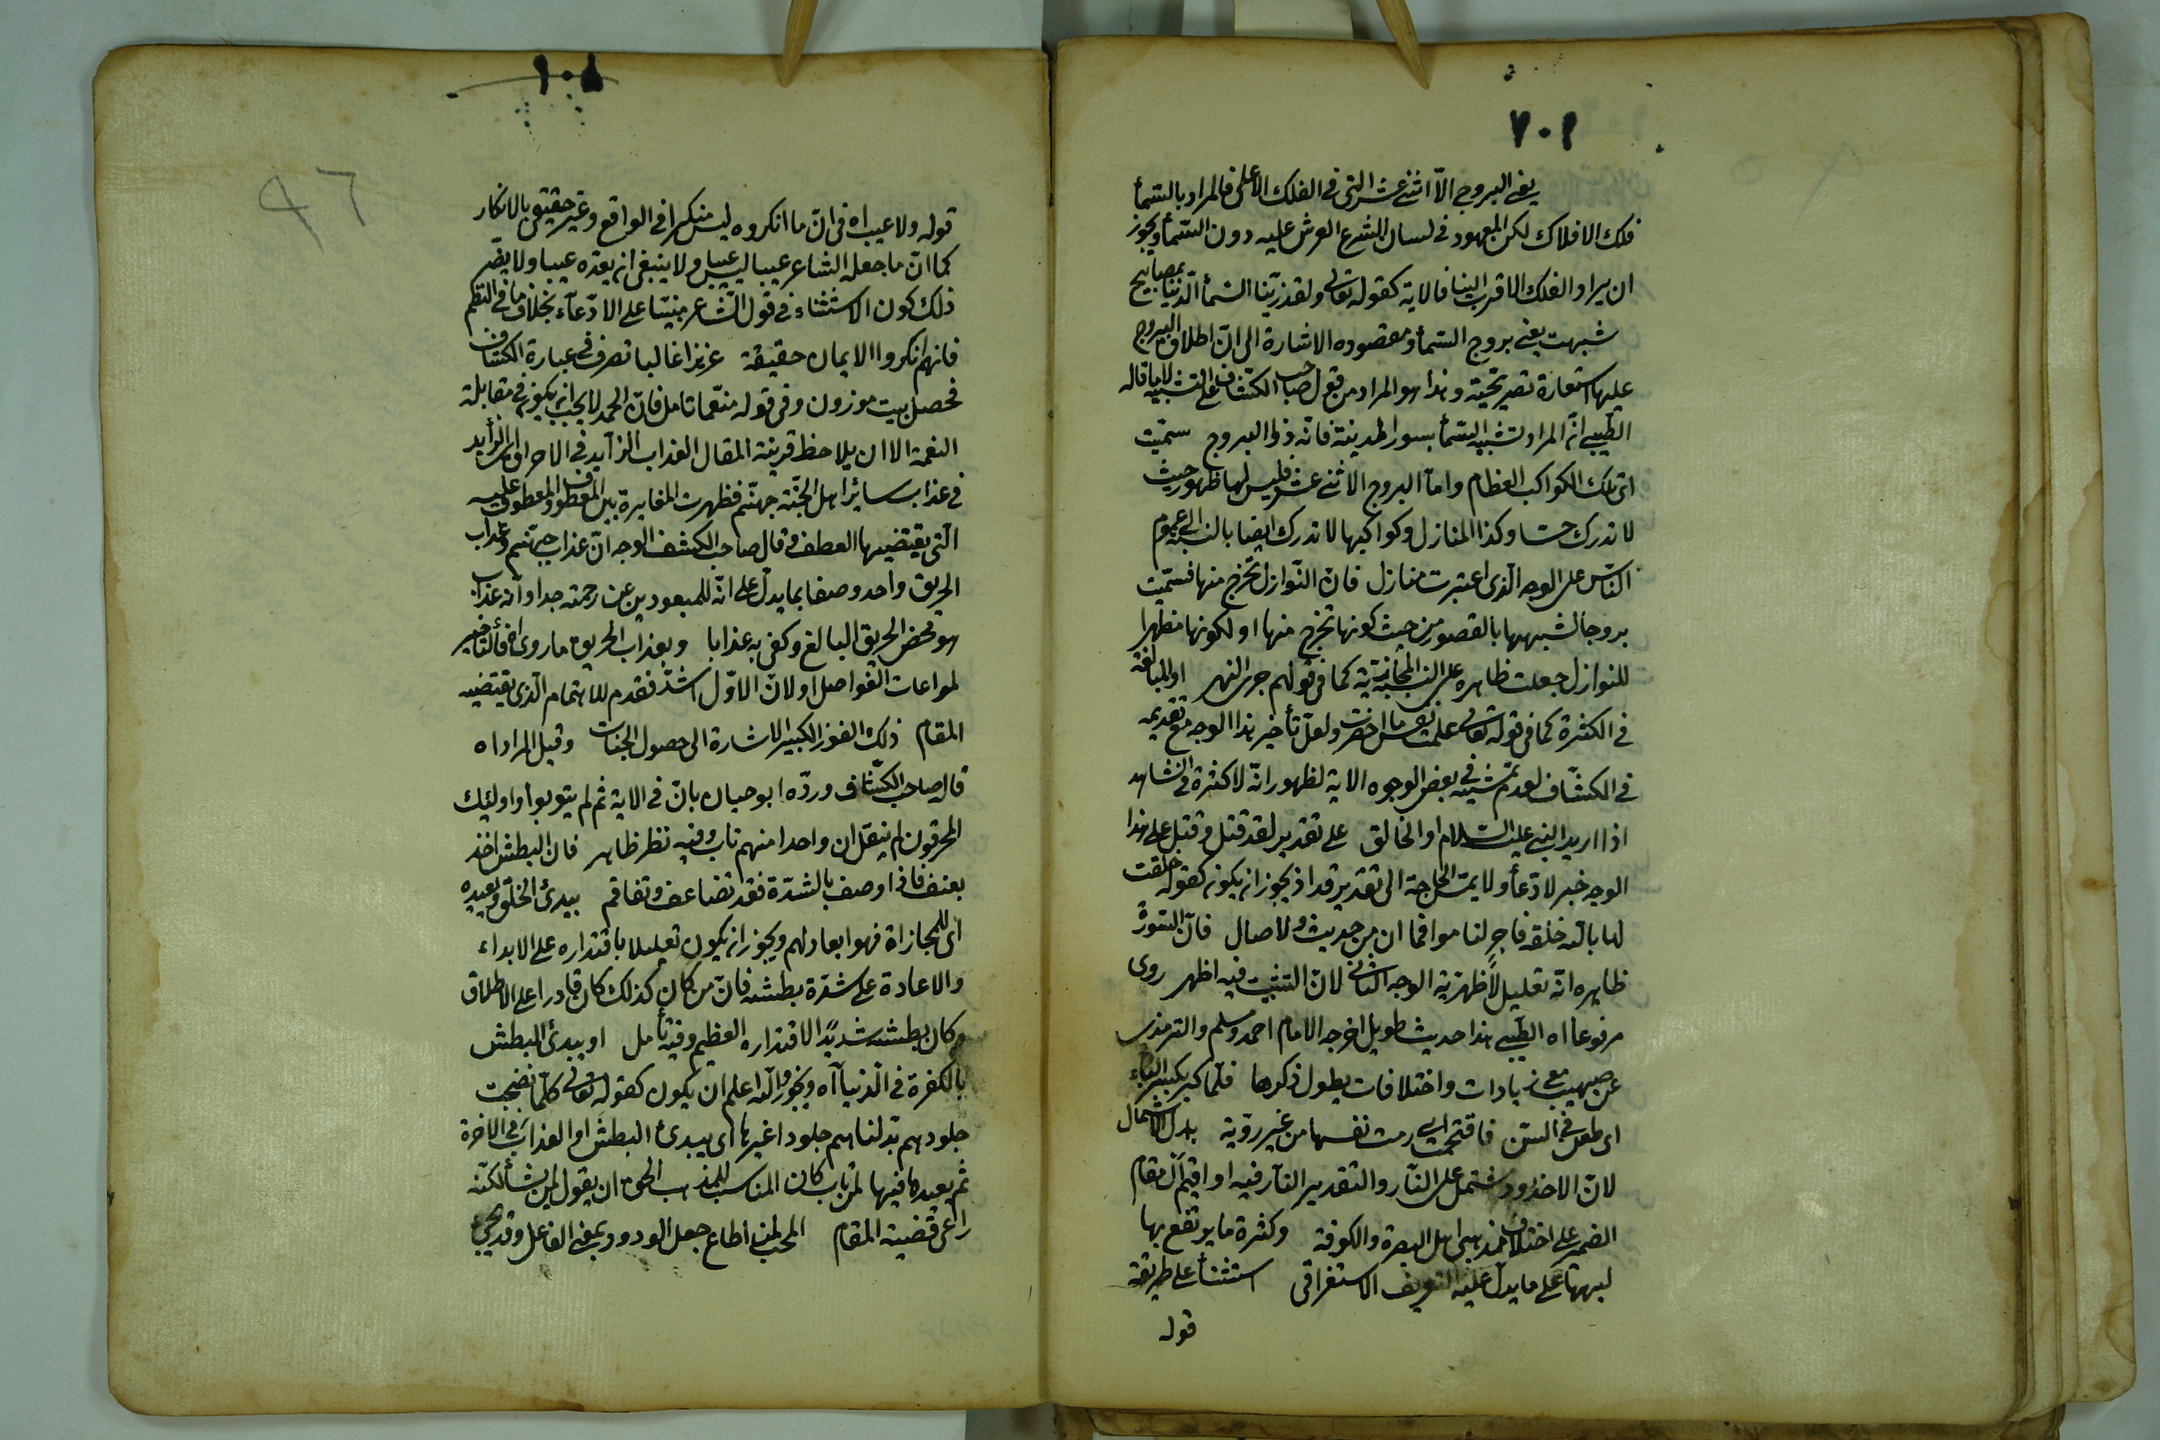 ١٠٧
يعنى البروج الا اثنى عشر التى فى الفلك الاعلى فالمراد بالسماء
فلك الافلاك لكن المعهود فى لسان الشرع العرش عليه دون السماء ويجوز
ان يراد الفلك الاقرب الينا فالاية كقوله تعالى ولقد زينا السماء الدنيا بمصابيح
شبهت يعنى بروج السماء ومقصوده الاشارة الى ان اطلاق البروج
عليها استعارة تصريحية وهذا هو المراد من قول صاحب الكشاف على التشبيه لا ما قاله
الطيبى ان المراد تشبيه السماء بسور المدينة فانه ذوا البروج سميت
اى تلك الكواكب العظام واما البروج الاثنى عشر فليس لها ظهور حيث
لا تدرك حسا وكذا المنازل وكواكبها لا تدرك ايضا بالنسبة الى عموم
الناس على الوجه الذى اعتبرت منازل فان النوازل تخرج منها فسميت
بروجا لشبهها بالقصور من حيث كونها تخرج منها او لكونها مظهرا
للنوازل جعلت ظاهره على النسبة المجازية كما فى قولهم جرى النهر او المبالغة
فى الكثرة كما فى قوله تعالى علمت نفس ما احضرت ولعل تأخير هذا الوجه مع تقديمه
فى الكشاف لعدم تمشيه فى بعض الوجوه الاية لظهور انه لا كثرة فى الشاهد
اذا اريد النبى عليه السلام او الخالق على تقدير لقد قتل وقيل على هذا
الوجه خبر لا دعاء ولا يمس الحاجة الى تقدير قد اذ يجوز انه يكون كقوله حلفت
لها بالله حلفة فاجر لناموا فما ان من حديث ولا صال فان السورة
ظاهره انه تعليل لأظهرية الوجه الثانى لان التثبيت فيه اظهر روى
مرفوعا اه الطيبى هذا حديث طويل اخرجه الامام احمد ومسلم والترمذى
عن صهيب مع زيادات واختلافات يطول ذكرها فلما كبر بكسر الباء
اى طعن فى السن فاقتحمت اى رمت نفسها من غير روية بدل الاشتمال
لان الاخدود مشتمل على النار والتقدير النار فيه او اقيم ال مقام
الضمير على اختلاف مذهبى اهل البصرة والكوفة وكثرة ما يرتفع بها
لهبها على ما يدل عليه التعريف الاستغراقى استثناء على طريقة
قوله
١٠٨
٩٦
قوله ولا عيب اه فى ان ما انكروه ليس منكرا فى الواقع وغير حقيق بالانكار
كما ان ما جعله الشاعر عيبا ليس عيبا ولا ينبغى انه يعده عيبا ولا يضر
ذلك كون الاستثناء فى قول الشاعر مبنيا على الادعاء بخلاف ما فى النظم
فانهم انكروا الايمان حقيقة عزيزا غالبا تصرف فى عبارة الكشاف
فحصل بيت موزون وفى قوله منعما تأمل فان الحمد لا يجب انه يكون فى مقابلة
النعمة الا ان يلاحظ قرينة المقال العذاب الزايد فى الاحراق اى الزايد
فى عذاب سائر اهل الجنة جهنم فظهرت المغايرة بين المعطوف والمعطوف عليه
التى يقتضيها العطف وقال صاحب الكشف الوجه ان عذاب جهنم وعذاب
الحريق واحد وصفا بما يدل على انه للمبعودين عن رحمته جدا وانه عذاب
هو محض الحريق البالغ وكفى به عذابا وبعذاب الحريق ما روى اه فالتاخير
لمراعات الفواصل او لان الاول اشد فقدم للاهتمام الذى يقتضيه
المقام ذلك الفوز الكبير الاشارة الى حصول الجنات وقيل المراد اه
قاله صاحب الكشاف ورده ابو حيان بان فى الاية ثم لم يتوبوا واولئك
المحرقون لم ينقل ان واحدا منهم تاب وفيه نظر ظاهر فان البطش اخذ
بعنف فاذا وصف بالشدة فقد تضاعف وتفاقم يبدئ الخلق ويعيده
اى للمجازاة فهو ابعاد لهم ويجوز انه يكون تعليلا باقتداره على الابداء
والاعادة على شدة بطشه فان من كان كذلك كان قادرا على الاطلاق
وكان بطشه شديدا لاقتداره العظيم وفيه تأمل او يبدئ البطش
بالكفرة فى الدنيا اه ويجوز والله اعلم ان يكون كقوله تعالى كلما نضجت
جلودهم بدلناهم جلودا غيرها اى يبدئ البطش او العذاب فى الاخرة
ثم يعيدها فيها لمن تاب كان المناسب للمذهب الحق ان يقول لمن يشاء لكنه
راعى قضية المقام المحب لمن اطاع جعل الودود بمعنى الفاعل وقد يجئ